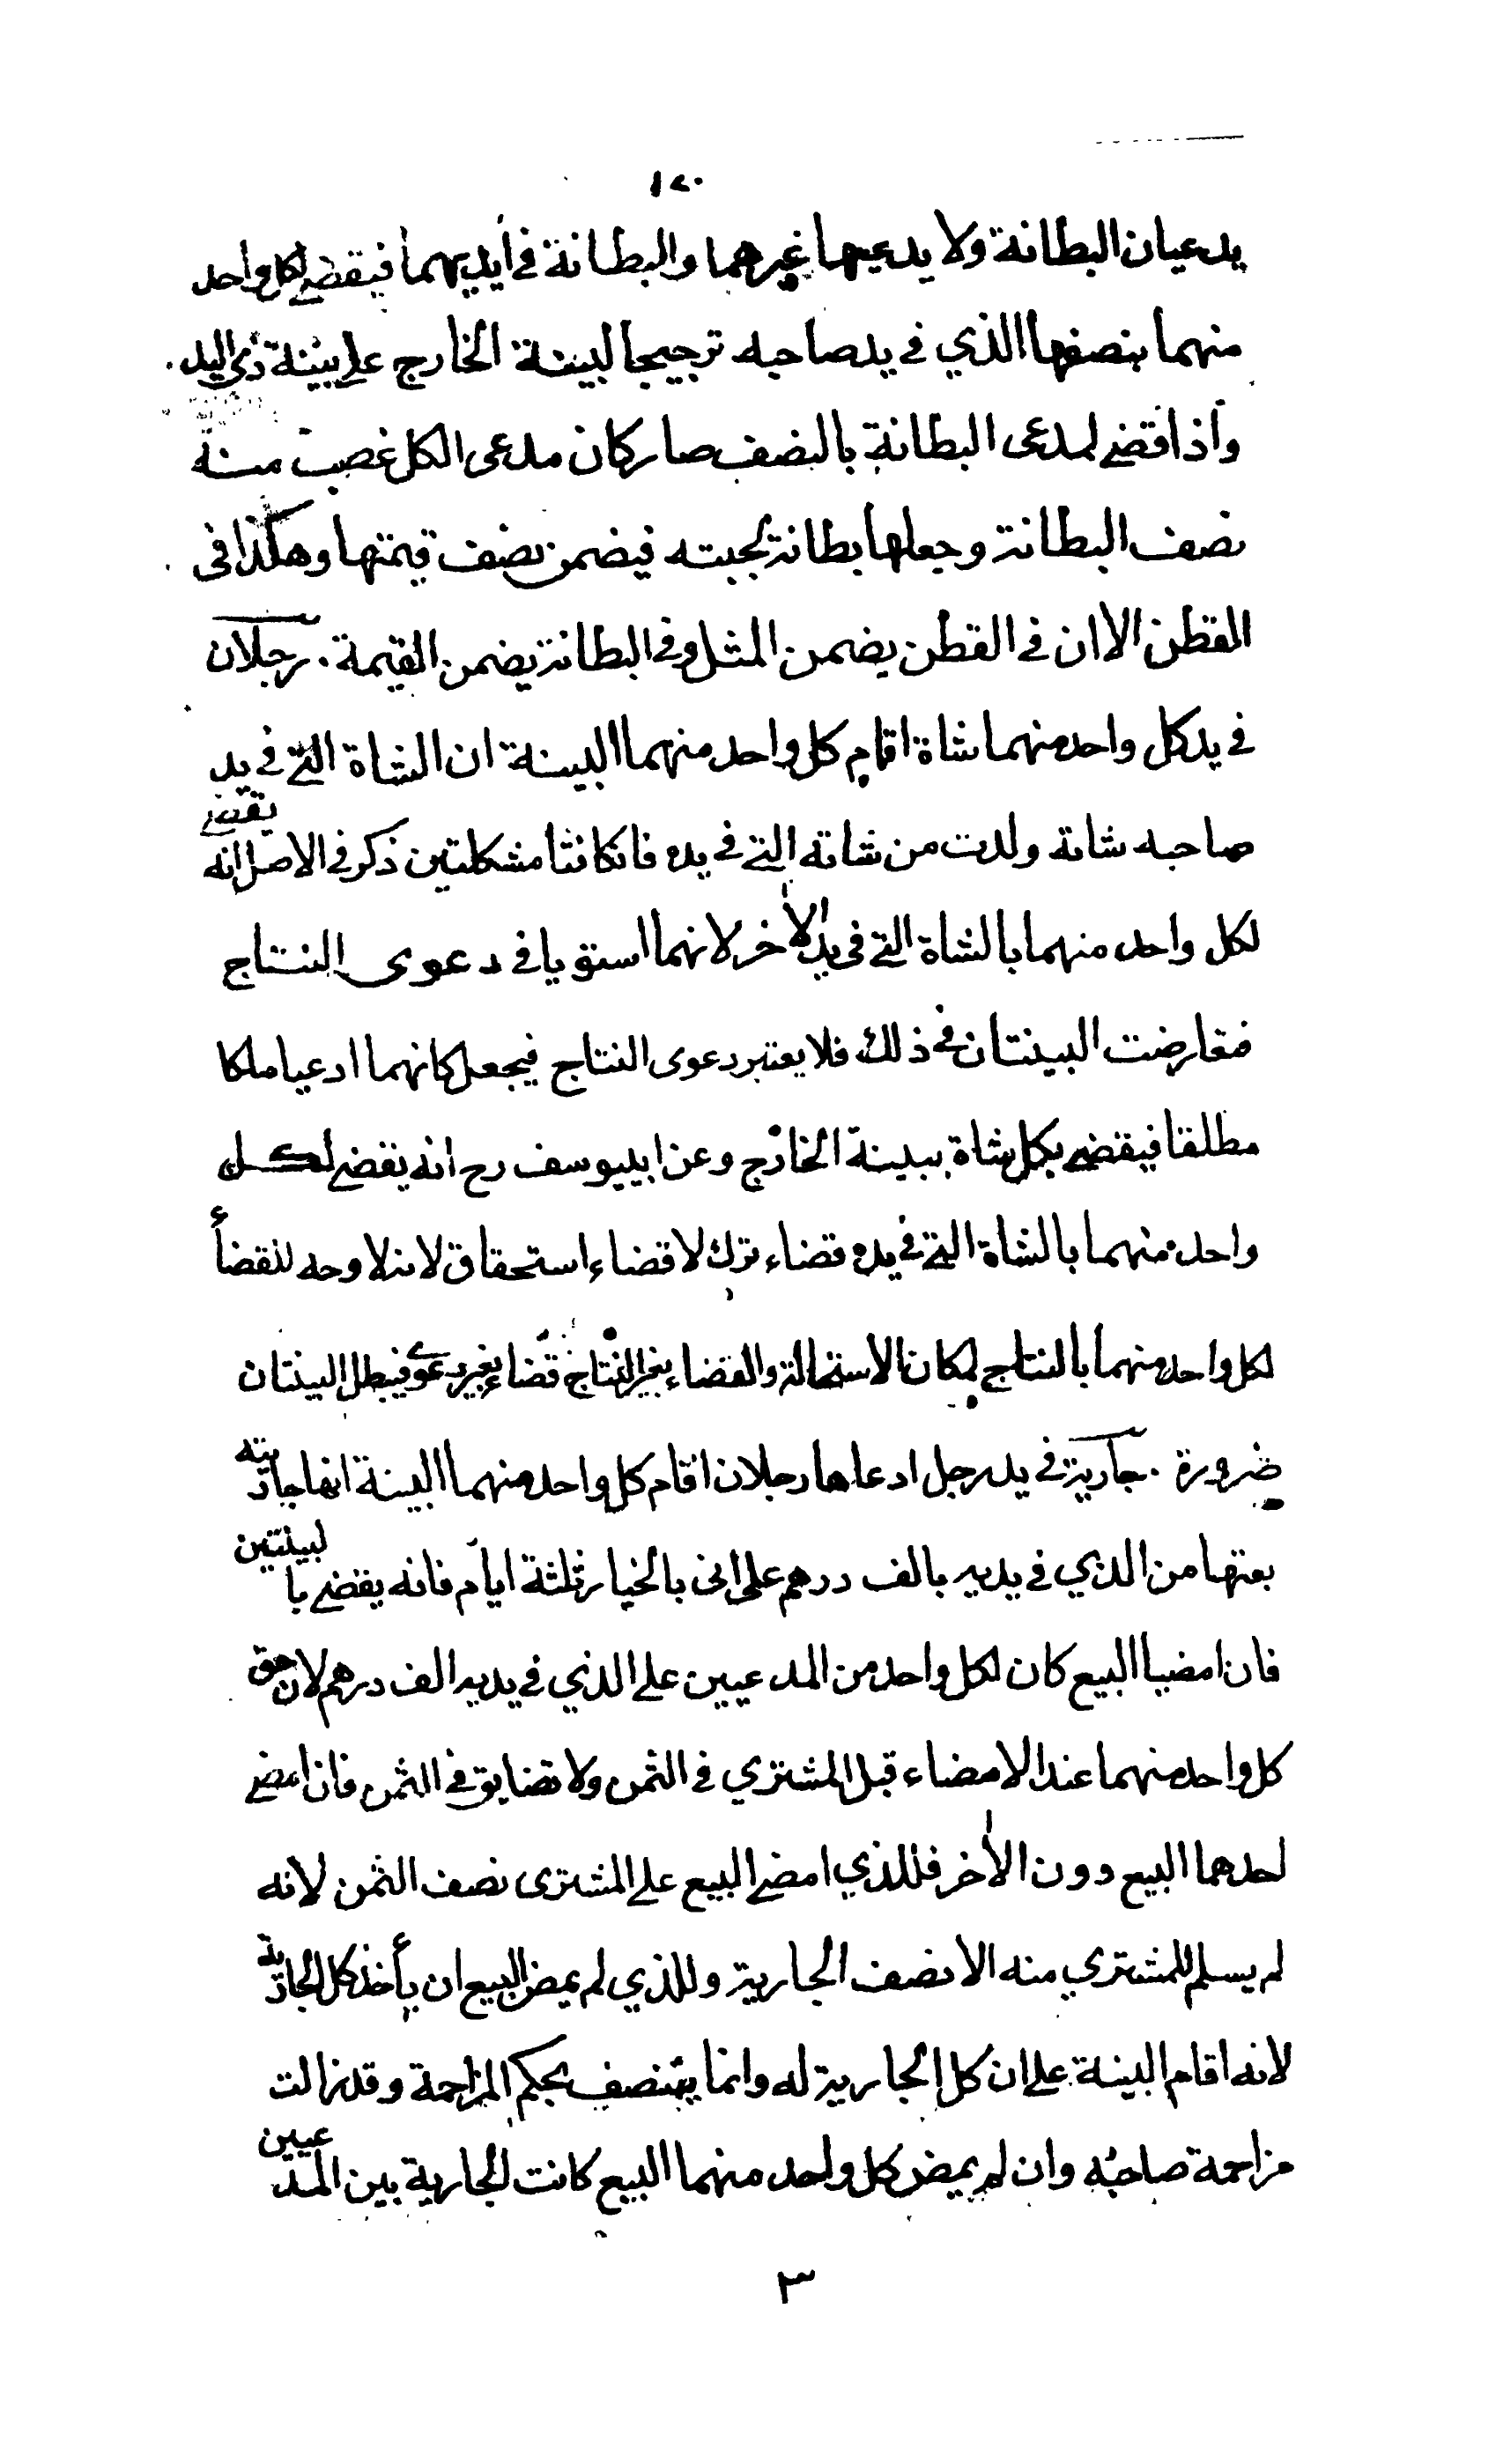 ١٢٠
يدعيان البطانة ولا يدعيها غيرهما والبطانة في أيديهما فيقضي لكل واحد
منهما بنصفها الذي في يد صاحبه ترجيحا لبينة الخارج على بينة ذي اليد
واذا قضي لمدعى البطانة بالنصف صار كان مدعى الكل غصب منه
نصف البطانة وجعلها بطانة لجبته فيضمن نصف قيمتها وهكذا في
القطن الا ان في القطن يضمن المثل وفي البطانة يضمن القيمة . رجلان
في يد كل واحد منهما شاة اقام كل واحد منهما البينة ان الشاة التي في يد
صاحبه شاتة ولدت من شاته التي في يده فان كانتا مشكلتين ذكر في الاصل انه يقضي
لكل واحد منهما بالشاة التي في يد الأخر لانهما استويا في دعوى النتاج
فتعارضت البينتان في ذلك فلا يعتبر دعوى النتاج فيجعل كانهما ادعيا ملكا
مطلقا فيقضي بكل شاة ببينة الخارج وعن ابي يوسف رح انه يقضي لكل
واحد منهما بالشاة التي في يده قضاء ترك لا قضاء استحقاق لانه لا وجه للقضأ
لكل واحد منهما بالنتاج لمكان الاستحالة والقضاء بغير النتاج قضاء بغير دعوى فيبطل البينتان
ضرورة . جارية في يد رجل ادعاها رجلان اقام كل واحد منهما البينة انها جاريته
بعتها من الذي في يديه بالف درهم على انى بالخيار ثلثة ايام فانه يقضي بالبينتين
فان امضيا البيع كان لكل واحد من المدعيين على الذي في يديه الف درهم لان حق
كل واحد منهما عند الامضاء قبل المشتري في الثمن ولا تضايق في الثمن فان امضى
احدهما البيع دون الأخر فللذي امضى البيع على المشترى نصف الثمن لانه
لم يسلم للمشتري منه الا نصف الجارية وللذي لم يمض البيع ان يأخذ كل الجارية
لانه اقام البينة على ان كل الجارية له وانما يتنصف بحكم المزاحمة وقد زالت
مزاحمة صاحبه وان لم يمض كل واحد منهما البيع كانت الجارية بين المدعيين
٣